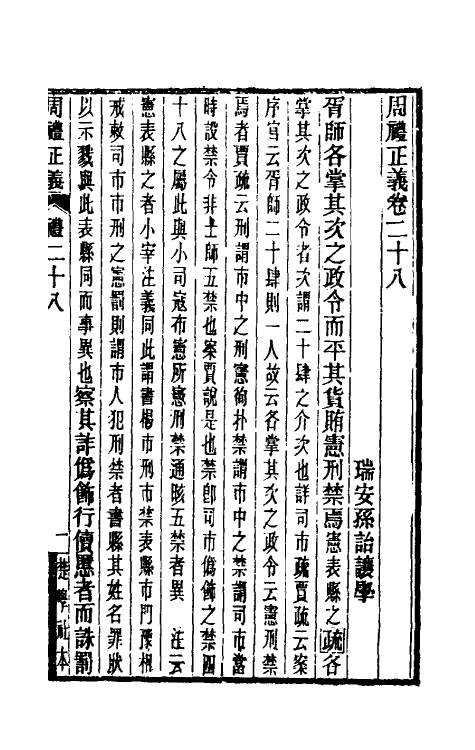 周禮正義卷二十八
瑞安孫詒讓學
胥師各掌其次之政令而平其貨賄憲刑禁焉憲表縣之疏各
掌其次之政令者次謂二十肆之介次也詳司市疏賈疏云案
序官云胥師二十肆則一人故云各掌其次之政令云憲刑禁
焉者賈疏云刑謂市中之刑憲徇扑禁謂市中之禁謂司市當
時設禁令非士師五禁也案賈說是也禁卽司市僞飾之禁四
十八之屬此與小司寇布憲所憲刑禁通晐五禁者異　注云
憲表縣之者小宰注義同此謂書楬市刑市禁表縣市門豫相
戒敕司市市刑之憲罰則謂市人犯刑禁者書縣其姓名罪狀
以示戮與此表縣同而事異也察其詐僞飾行儥慝者而誅罰
周禮正義　禮二十八　一　楚學社本